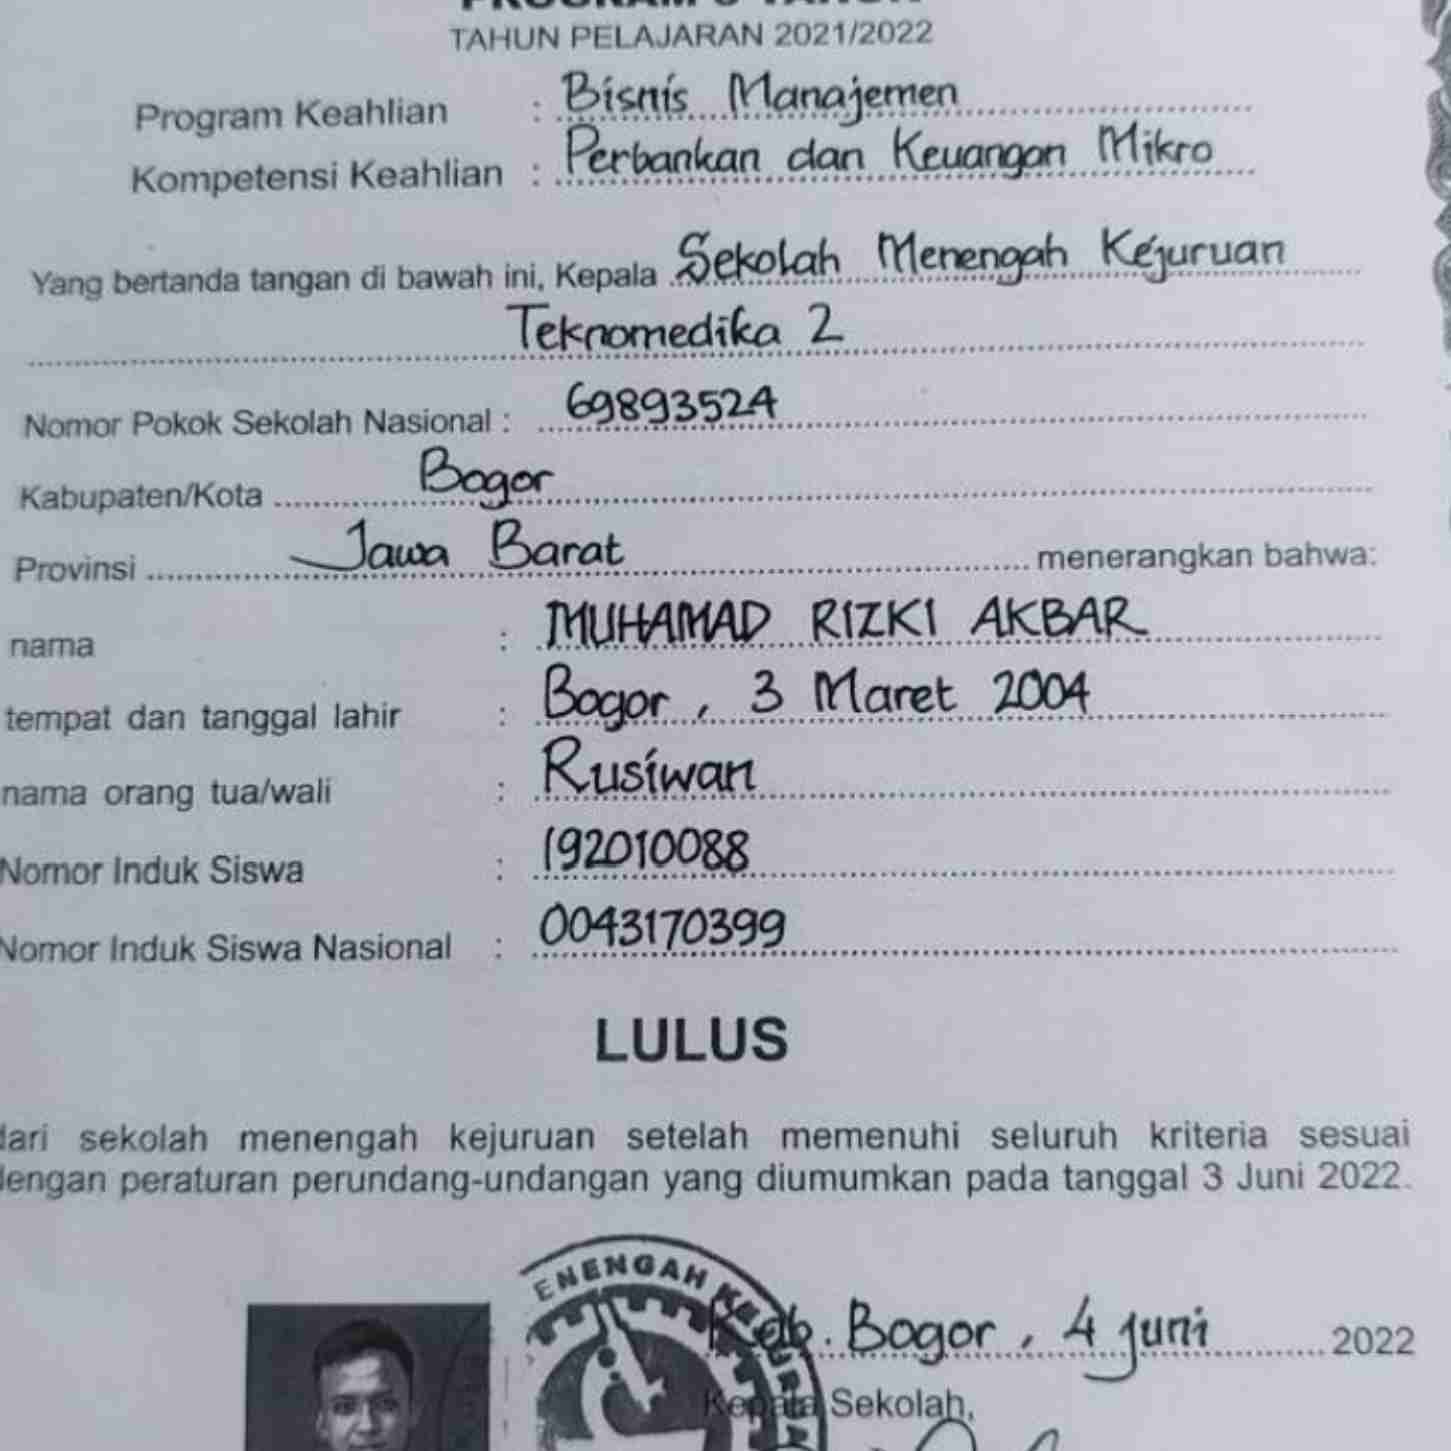 PROGRAM 3 TAHUN
TAHUN PELAJARAN 2021/2022
Program Keahlian : Bisnis Manajemen
Kompetensi Keahlian : Perbankan dan Keuangan Mikro
Yang bertanda tangan di bawah ini, Kepala Sekolah Menengah Kejuruan
Teknomedika 2
Nomor Pokok Sekolah Nasional : 69893524
Kabupaten/Kota Bogor
Provinsi Jawa Barat menerangkan bahwa:
nama : MUHAMAD RIZKI AKBAR
tempat dan tanggal lahir : Bogor, 3 Maret 2004
nama orang tua/wali : Rusiwan
Nomor Induk Siswa : 192010088
Nomor Induk Siswa Nasional : 0043170399
LULUS
dari sekolah menengah kejuruan setelah memenuhi seluruh kriteria sesuai
dengan peraturan perundang-undangan yang diumumkan pada tanggal 3 Juni 2022.
ENENGAH KEJURUA
Kab. Bogor, 4 Juni 2022
Kepala Sekolah,